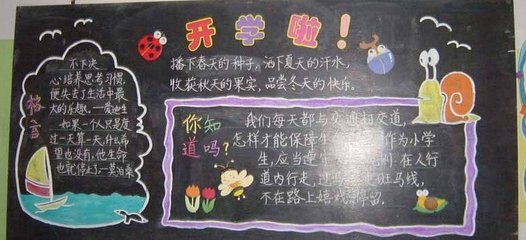 开学啦！
播下春天的种子，洒下夏天的汗水，
收获秋天的果实，品尝冬天的快乐。
格言
不下决
心培养思考习惯，
便失去了生活中最
大的乐趣。—爱迪生
如果一个人只是度
过一天算一天，什么希
望也没有，他生命
也就停止了—莫泊桑
你知
道吗？
我们每天都与交通打交道，
怎样才能保障生 作为小学
生，应当遵 在人行
道内行走，过马 斑马线，
不在路上嬉戏 停留。